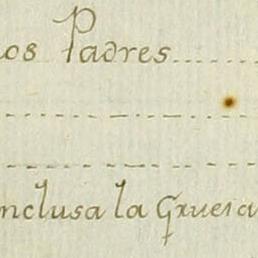 os Padres
nclusa la Grueia